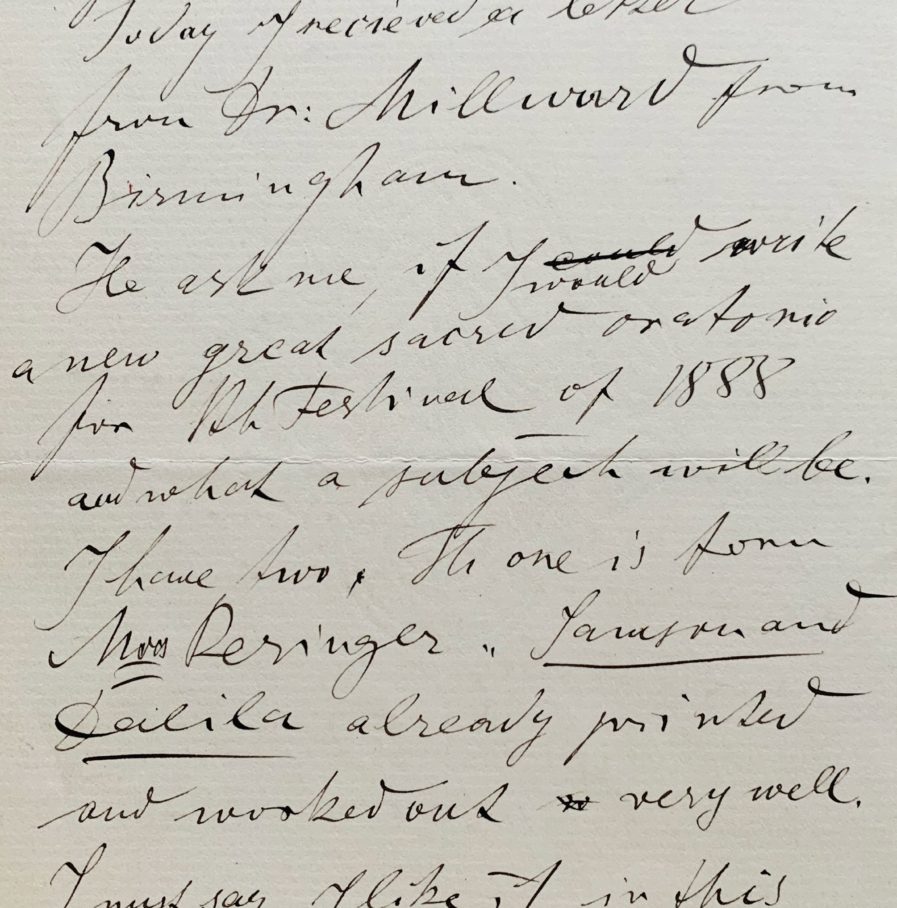 Today I recieved a letter
from Dr: Millward from
Birmingham.
He ask me, if I could would write
a new great sacred oratorio
for th Festival of 1888
and what a subject will be.
I have two. Th one is form
Mros Resinger „ Samson and
Dalila already printed
and wooked out very well.
I must say I like it in this